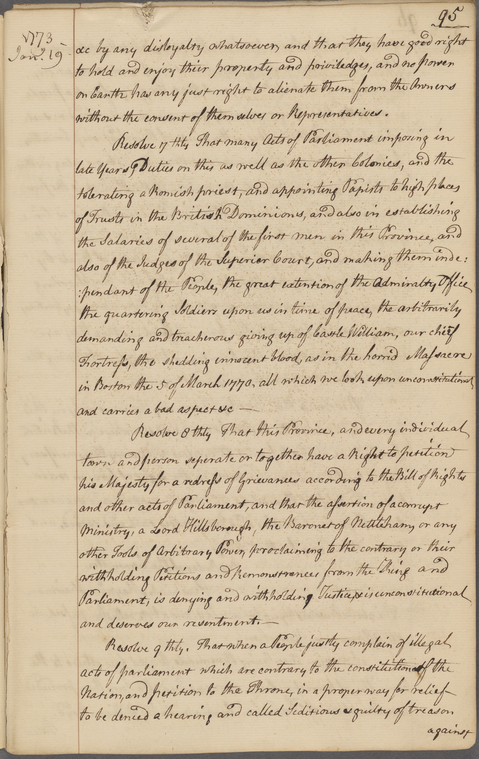 95
1773
Janry 19
&c by any disloyalty whatsoever, and that they have good right
to hold and enjoy their property and priviledges, and no power
on Earth has any just right to alienate them from the Owners
without the consent of themselves or Representatives.
Resolve 7thly That many Acts of Parliament imposing in
late Years Duties on this as well as the other Colonies, and the
tolerating a Romish priest, and appointing Papists to high places
of Trusts in the British Dominions, and also in establishing
the Salaries of several of the first men in this Province, and
also of the Judges of the Superior Court, and making them inde:
:pendant of the People, the great extention of the Admiralty Office
the quartering Soldiers upon us in time of peace, the arbitrarily
demanding and treacherous giving up of Castle William, our chief
Fortress, the shedding innocent blood, as in the horrid Massacre
in Boston the 5 of March 1770, all which we look upon unconstitutional
and carries a bad aspect &c —
Resolve 8thly That this Province, and every individual
town and person seperate or together have a Right to petition
his Majesty for a redress of Grievances according to the Bill of Rights
and other acts of Parliament, and that the assertion of a corrupt
Ministry, a Lord Hillsborough, the Baronet of Nettleham, or any
other Tools of Arbitrary Power, proclaiming to the contrary or their
withholding Petitions and Remonstrances from the King and
Parliament, is denying and withholding Justice, & is unconstitutional
and deserves our resentment. —
Resolve 9thly. That when a People justly complain of illegal
acts of parliament which are contrary to the constitution of the
Nation, and petition to the Throne, in a proper way for relief
to be denied a hearing and called Seditious & guilty of treason
against